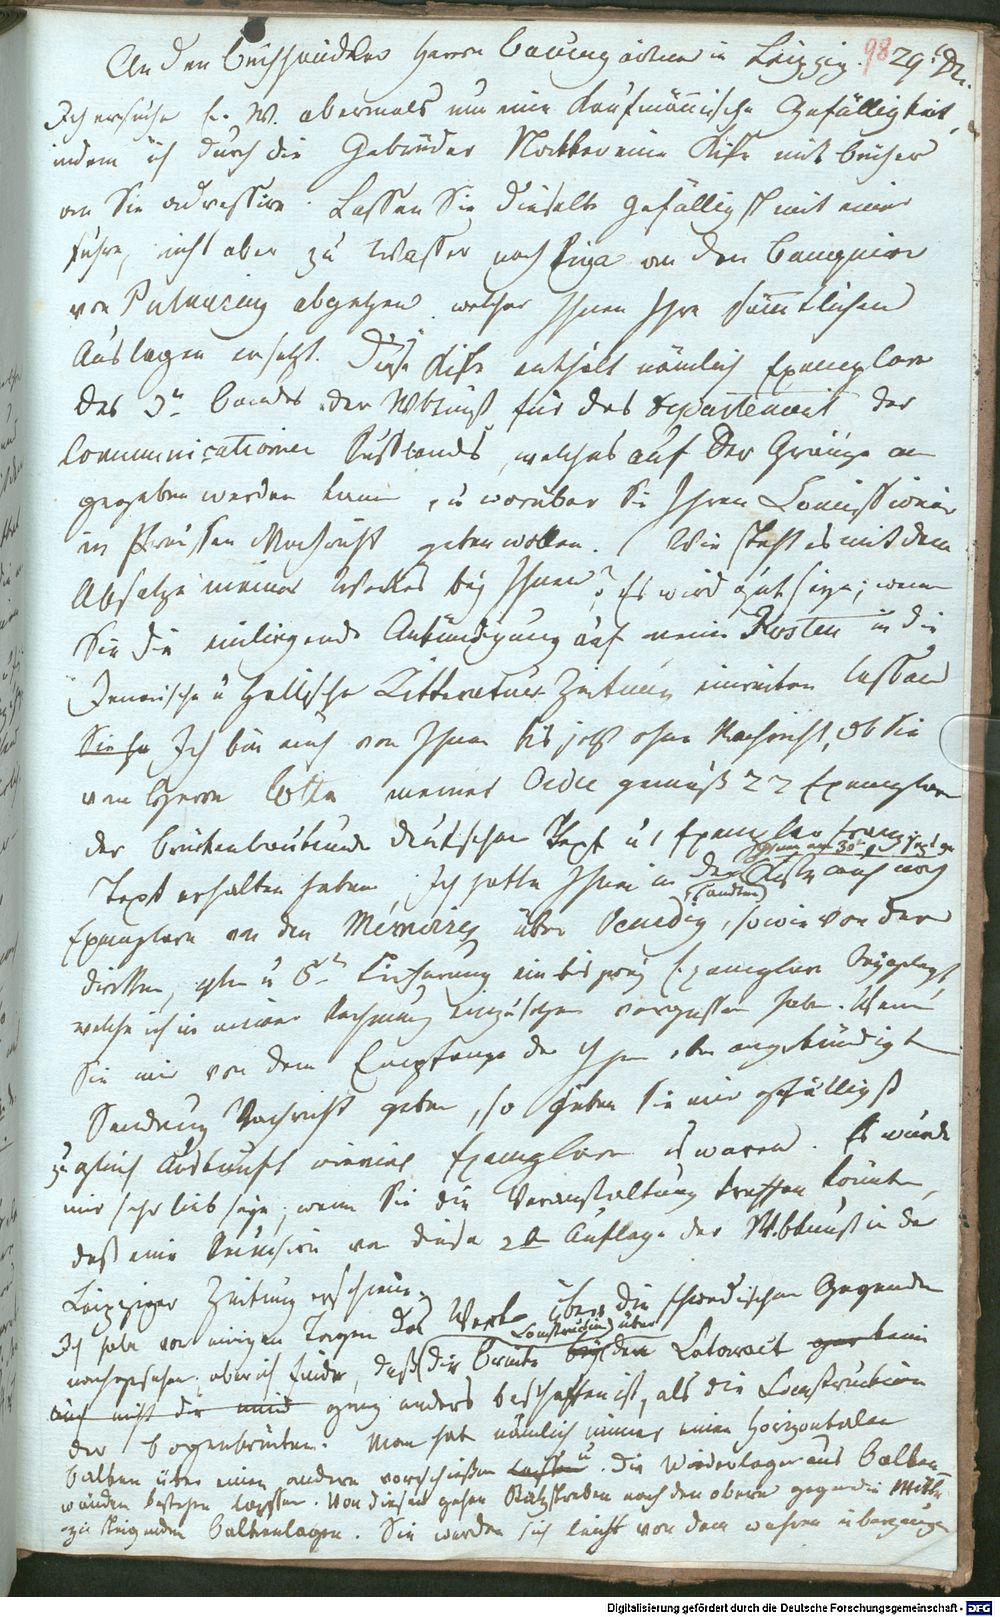 An den Buchhändler Herrn Baumgärtner in Leipzig. 98 29t Dz.
Ich ersuche E. W. abermals um eine Kaufmännische Gefälligkeit,
indem ich durch die Gebrüder Nockher eine Kiste mit Bücher
an Sie adressire. Lassen Sie dieselbe gefälligst mit einer
Fuhre, nicht aber zu Wasser nach Riga an den Banquier
von abgehen welcher Ihnen Ihre sämtlichen
Auslagen ersetzt. Diese Kiste enthält nämlich Exemplare
des 3n Bandes der Wbkunst für das Departement der
Communicationen Russlands, welches auf der Gränze an
gegeben werden kann, u worüber Sie Ihrem Comissionär
in Preussen Nachricht geben wollen. Wie steht es mit dem
Absatze meiner Werke bey Ihnen? Es wird gut seyn, wenn
Sie die einliegende Ankündigung auf meine Kosten in die
Jenaische u Hallische Litteratur Zeitung einrücken lassen
Sie ha Ich bin auch von Ihnen bis jetzt ohne Nachricht, ob Sie
von Herrn Cotta meiner Ordre gemäß 22 Exemplare
der Brückenbaukunde deutschen Text u 1 Exemplar französ
Text erhalten haben. Ich hatte Ihnen in der Kiste auch noch
Exemplare von den Mémoires über Venedig, so wie von der
dritten, 4ten u 5n Lieferung ein bis zwey Exemplare beygelegt,
welche ich in meiner Rechnung einzusetzen vergessen habe. Wenn
Sie mir von dem Empfange der Ihnen eben angekündigten
Sendung Nachricht geben, so geben Sie mir gefälligst
zugleich Auskunft wieviel Exemplare es waren. Es würde
mir sehr lieb seyn, wenn Sie die Veranstaltung treffen könnten,
daß eine Recension von dieser 2n Auflage der Wbkunst in der
Leipziger Zeitung erschiene.
Ich habe vor einigen Tagen das Werk über die Gegenden
nachgesehen, aber ich finde, daß die Construction über
der Brücke bey dem gar keine
auch nicht die ganz anders beschaffen ist, als die Construction
der Bogenbrücken. Man hat nämlich immer einen horizontalen
Balken über einen andern vorschießen lassen u. die Wiederlager aus Balken
wänden bestehen lassen. Von diesen gehen nach den obern gegen die Mitte
zu steigenden Balkenlagen. Sie werden sich leicht von dem wahren überzeugen